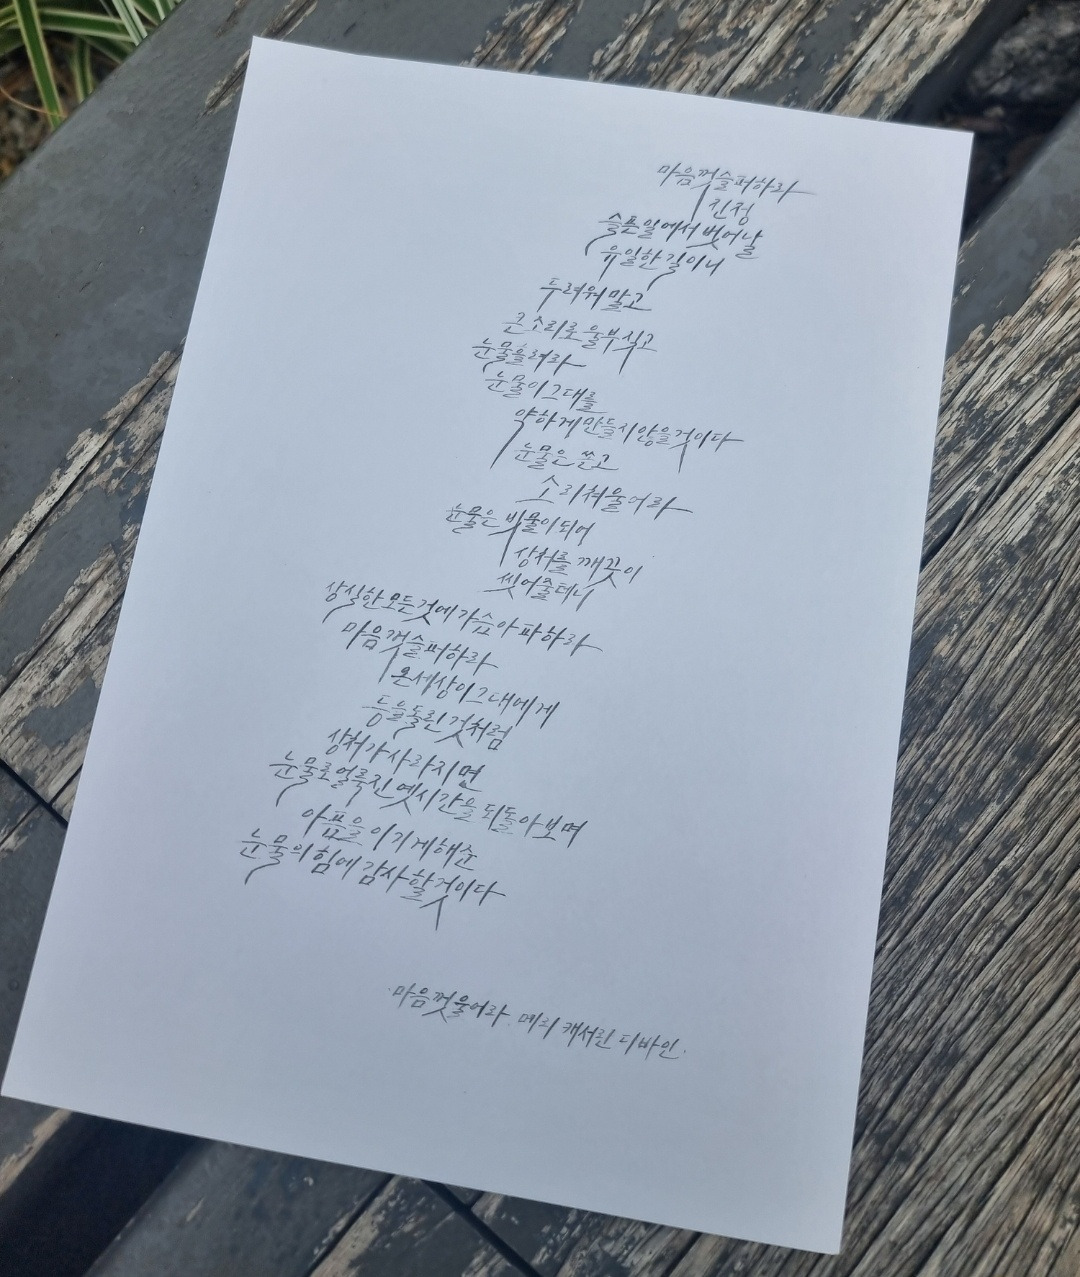 마음껏 슬퍼하라
진정
슬픈 일에서 벗어날
유일한 길이니
두려워 말고
큰 소리로 울부짖고
눈물 흘려라
눈물이 그대를
약하게 만들지 않을 것이다
눈물은 쏟고
소리쳐 울어라
눈물은 빗물이 되어
상처를 깨끗이
씻어줄테니
상실한 모든 것에 가슴 아파하라
마음껏 슬퍼하라
온 세상이 그대에게
등을 돌린 것처럼
상처가 사라지면
눈물로 얼룩진 옛 시간을 되돌아보며
아픔을 이기게 해준
눈물의 힘에 감사할 것이다
마음껏 울어라. 메리 캐서린 디바인.